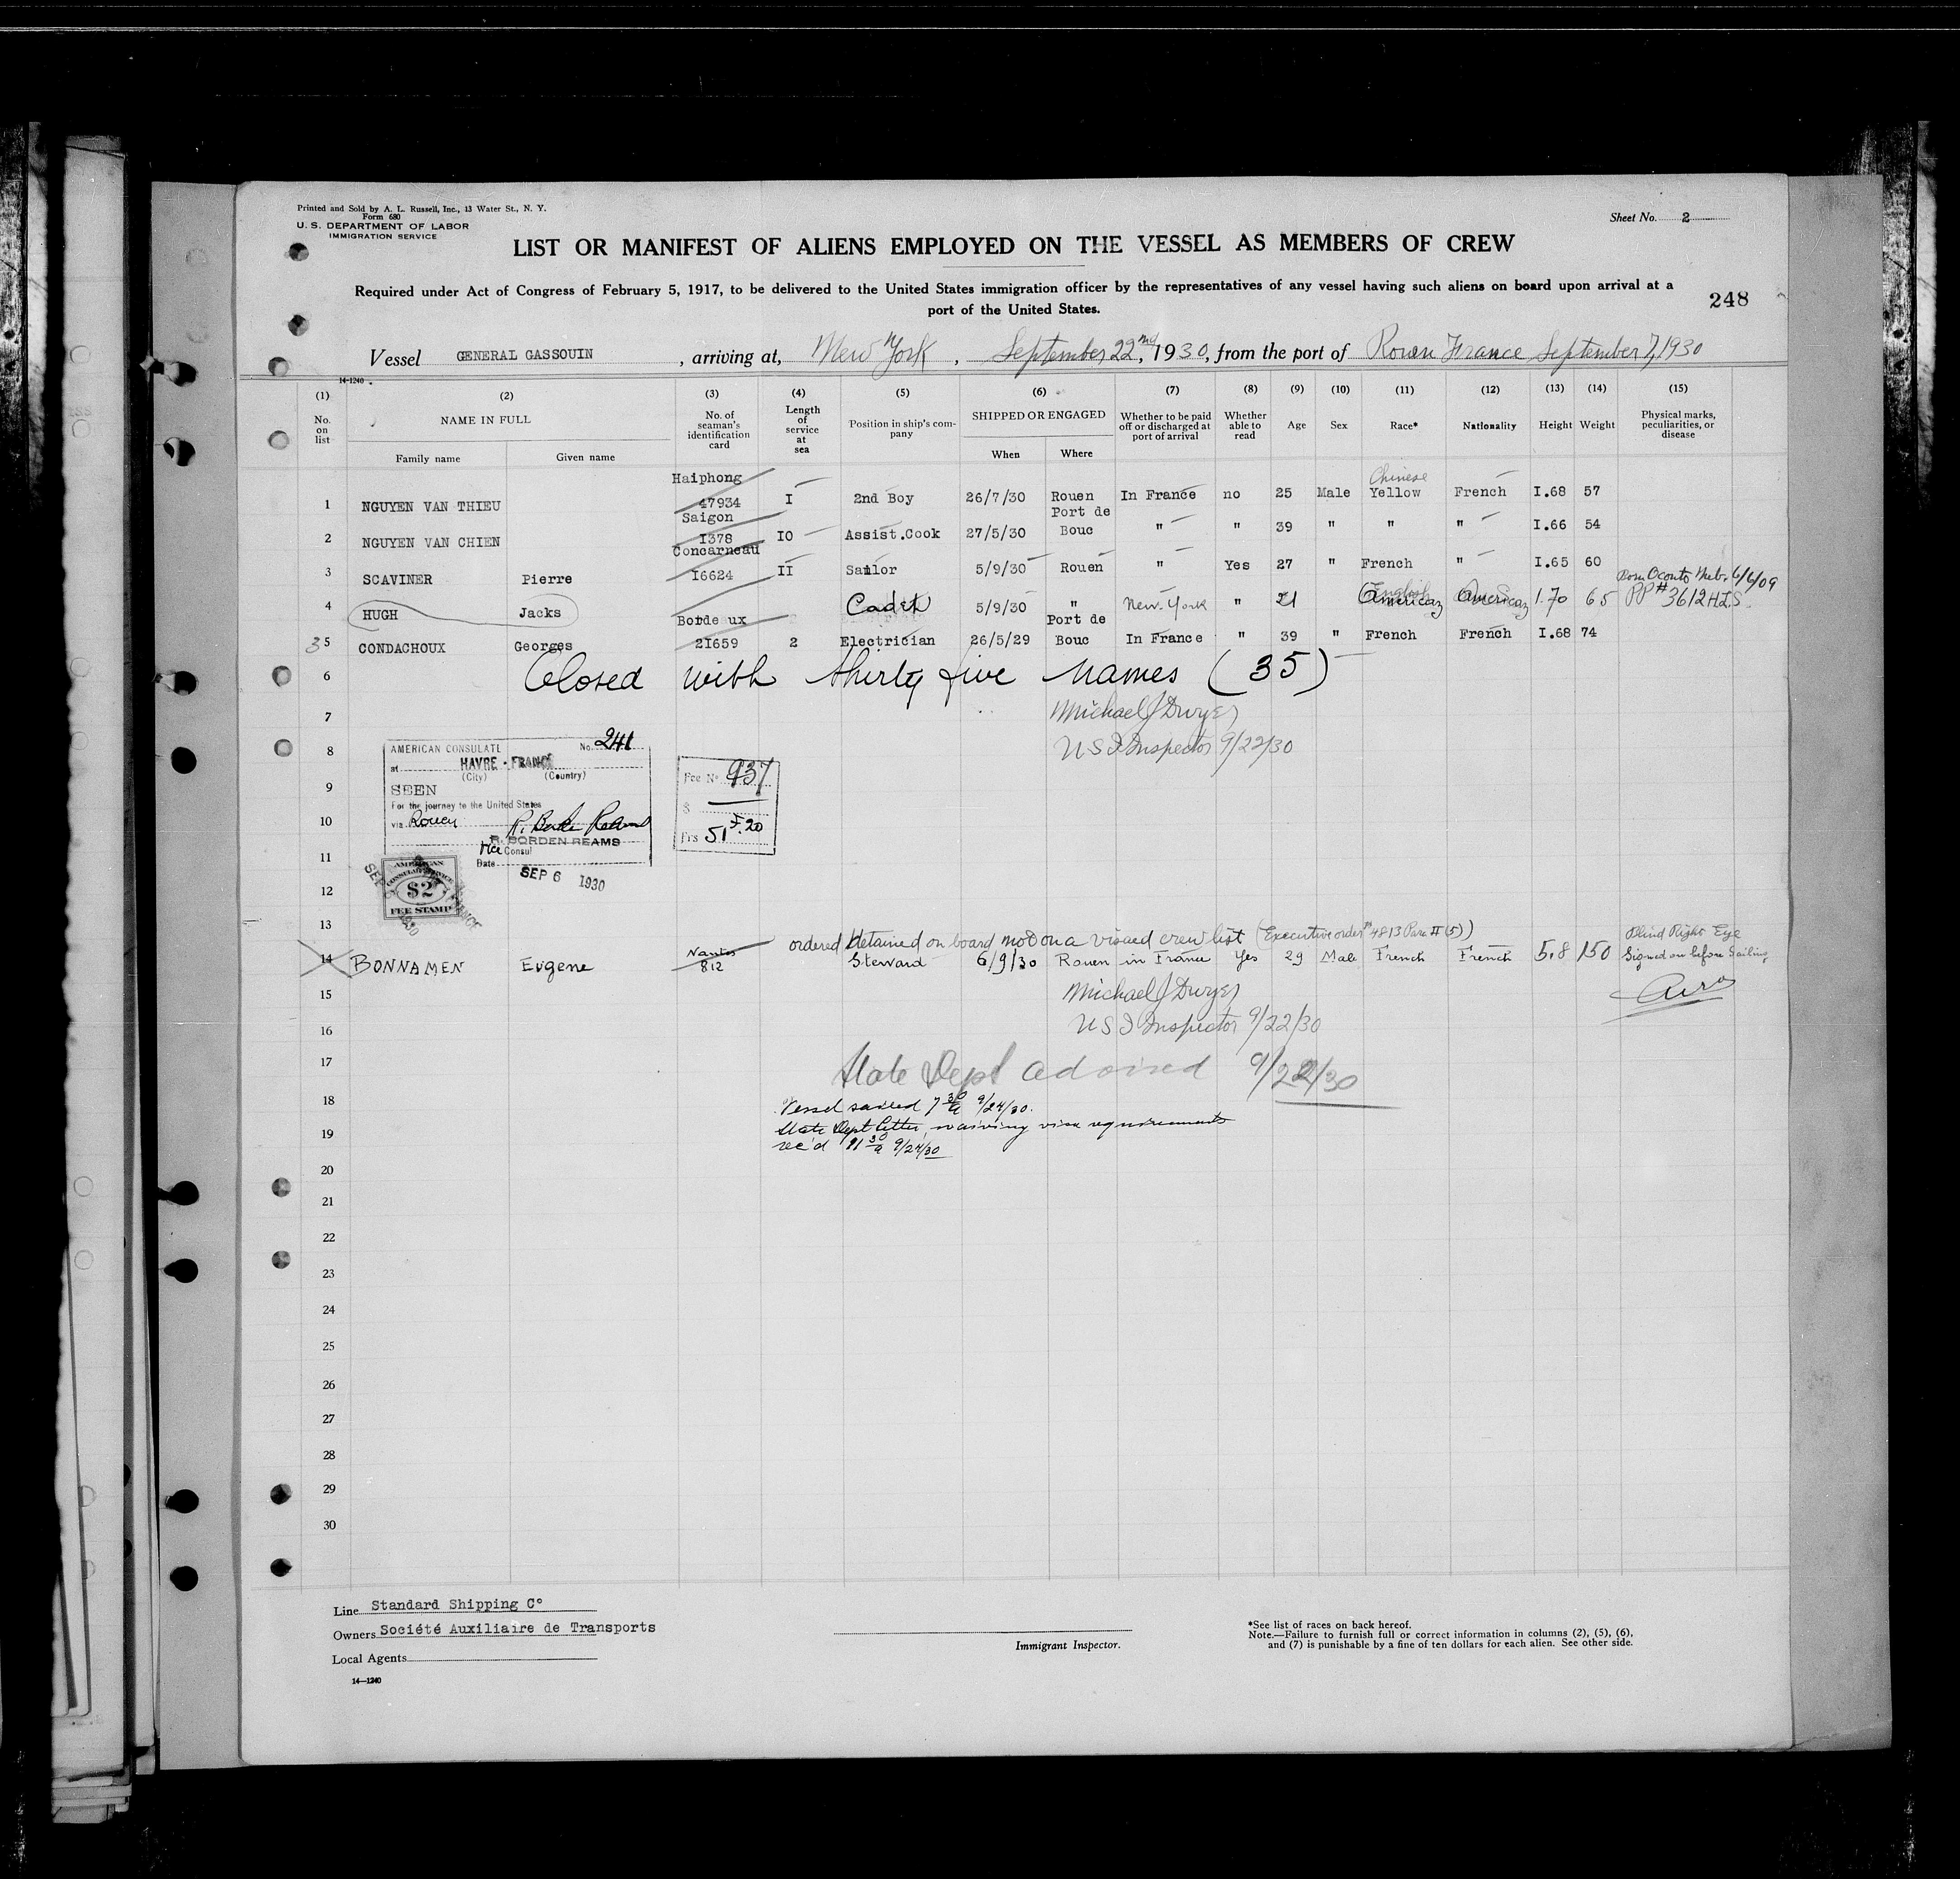 Printed and Sold by A. L. Russell, Inc., 13 Water St., N. Y.
Form 680
U. S. DEPARTMENT OF LABOR
IMMIGRATION SERVICE
Sheet No. 2
LIST OR MANIFEST OF ALIENS EMPLOYED ON THE VESSEL AS MEMBERS OF CREW
Required under Act of Congress of February 5, 1917, to be delivered to the United States immigration officer by the representatives of any vessel having such aliens on board upon arrival at a
port of the United States.
248
Vessel GENERAL GASSOUIN, arriving at, New York, September 22nd, 1930, from the port of Rouen France September 7, 1930
14-1240
(1) (2) (3) (4) (5) (6) (7) (8) (9) (10) (11) (12) (13) (14) (15)
No. on list NAME IN FULL No. of seaman's identification card Length of service at sea Position in ship's company SHIPPED OR ENGAGED Whether to be paid off or discharged at port of arrival Whether able to read Age Sex Race* Nationality Height Weight Physical marks, peculiarities, or disease
Family name Given name When Where
Haiphong Chinese
1 NGUYEN VAN THIEU 47934 I 2nd Boy 26/7/30 Rouen In France no 25 Male Yellow French I.68 57
Saigon Port de
2 NGUYEN VAN CHIEN I378 IO Assist.Cook 27/5/30 Bouc " " 39 " " " I.66 54
Concarneau
3 SCAVINER Pierre I6624 II Sailor 5/9/30 Rouen " Yes 27 " French " I.65 60
Born Oconto Neb. 6/6/09
4 HUGH Jacks Cadet 5/9/30 " New-York " 21 English American American 1.70 65 PP # 3612 H.I.S.
Bordeaux Port de
35 CONDACHOUX Georges 2I659 2 Electrician 26/5/29 Bouc In France " 39 " French French I.68 74
6 Closed with thirty five names (35)
7 Michael J Dwyer
8 U S I Inspector 9/22/30
AMERICAN CONSULATE No. 241
at HAVRE - FRANCE
(City) (Country)
SEEN
For the journey to the United States
via Rouen
R. BORDEN REAMS
Vice Consul
Date SEP 6 1930
Fee No 937
$
Frs 51 F.20
AMERICAN
CONSULAR SERVICE
$2
FEE STAMP
9
10
11
12
13 ordered detained on board not on a visaed crew list (Executive order # 4813 Para II (5))
Nantes Blind Right Eye
14 BONNAMEN Eugene 812 Steward 6/9/30 Rouen in France Yes 29 Male French French 5.8 150 Signed on before Sailing
15 Michael J Dwyer
16 U S I Inspector 9/22/30
17 State Dept advised 9/22/30
18 Vessel sailed 7 30 a 9/24/30.
19 State Dept letter, waiving visa requirements
rec'd 11 30 a 9/24/30
20
21
22
23
24
25
26
27
28
29
30
Line Standard Shipping Co
Owners Société Auxiliaire de Transports
Local Agents
14—1240
Immigrant Inspector.
*See list of races on back hereof.
Note.—Failure to furnish full or correct information in columns (2), (5), (6),
and (7) is punishable by a fine of ten dollars for each alien. See other side.